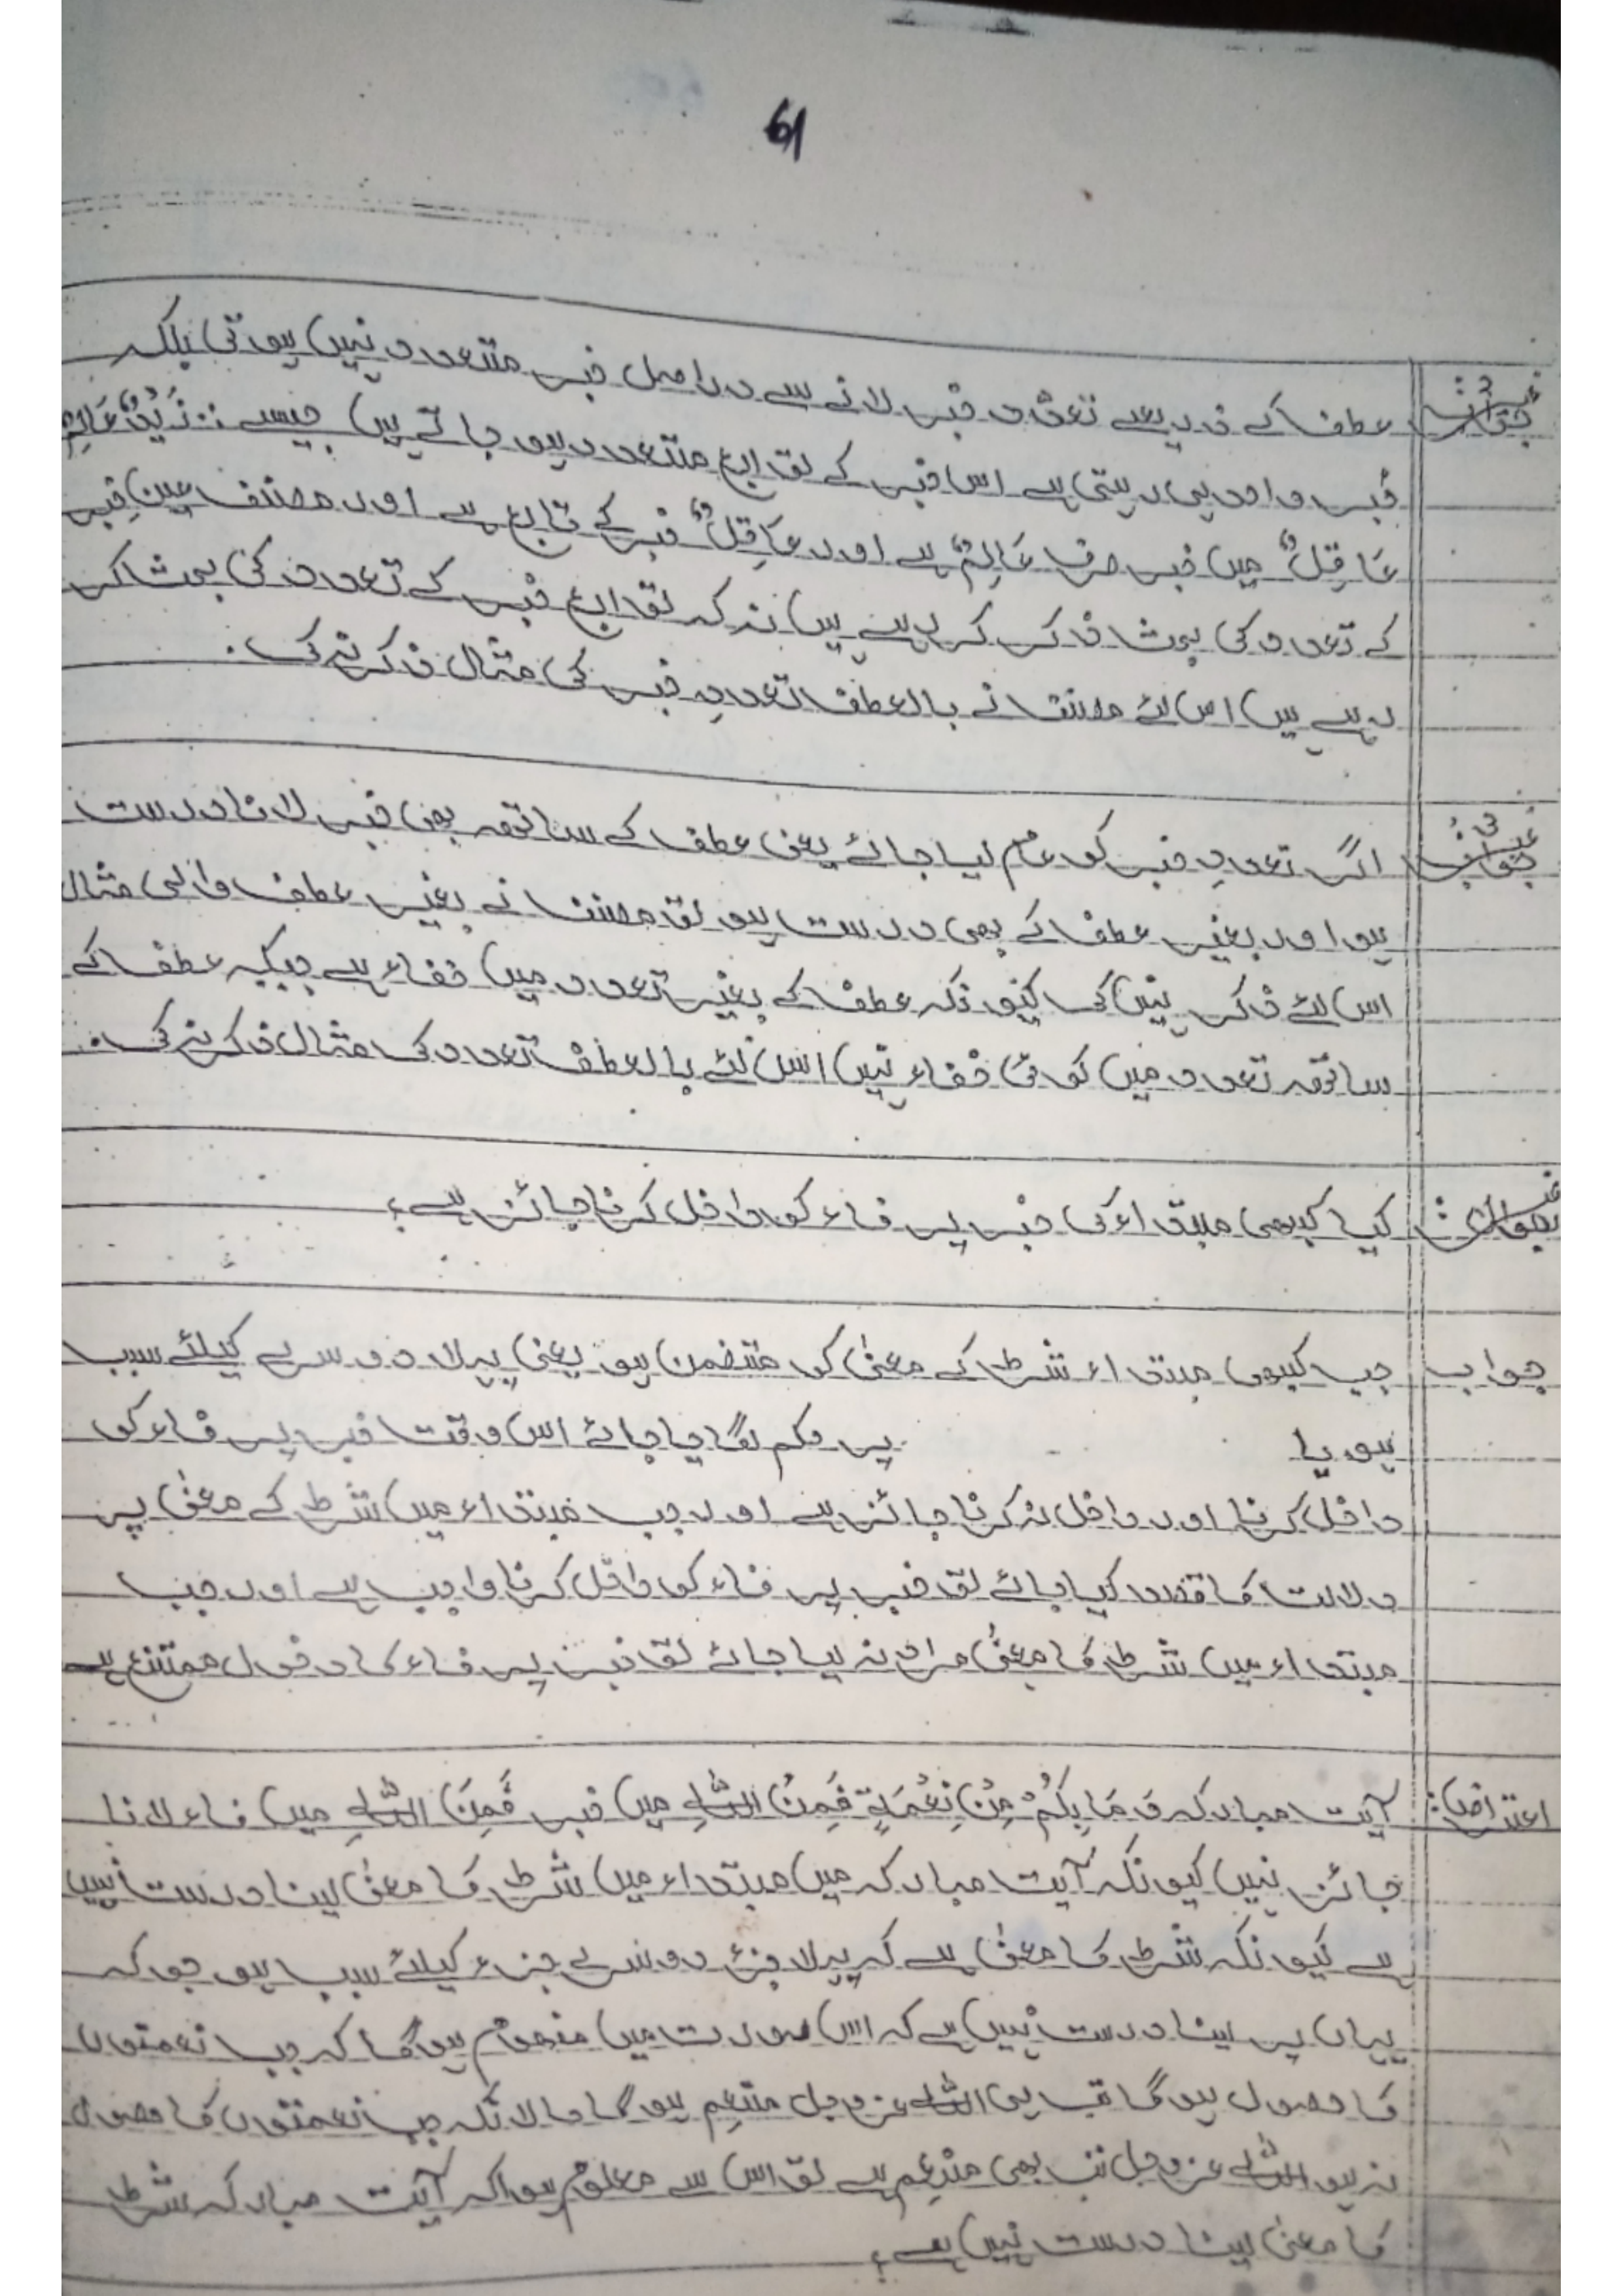 61
جواب نمبر 1: عطف کے ذریعے تعدّد خبر لانے سے دراصل خبر متعدد نہیں ہوتی بلکہ
خبر واحد ہی رہتی ہے اس خبر کے توابع متعدد ہو جاتے ہیں جیسے :: زَیْدٌ عَالِمٌ
عَاقِلٌ میں خبر صرف عَالِمٌ ہے اور عَاقِلٌ خبر کے تابع ہے اور مصنف عین خبر
کے تعدد کی بحث ذکر کر رہے ہیں نہ کہ توابع خبر کے تعدد کی بحث کر
رہے ہیں اس لئے مصنف نے بالعطف تعددِ خبر کی مثال ذکر نہ کی۔
جواب نمبر 2: اگر تعددِ خبر کو عام لیا جائے یعنی عطف کے ساتھ بھی خبر لانا درست
ہو اور بغیر عطف کے بھی درست ہو تو مصنف نے بغیر عطف والی مثال
اس لئے ذکر نہیں کی کیونکہ عطف کے بغیر تعدد میں خفاء ہے جبکہ عطف کے
ساتھ تعدد میں کوئی خفاء نہیں اس لئے بالعطف تعدد کی مثال ذکر نہ کی۔
کیا کبھی مبتداء کی خبر پر فاء کو داخل کرنا جائز ہے؟
جواب جب کبھی مبتداء شرط کے معنیٰ کو متضمن ہو یعنی پہلا دوسرے کیلئے سبب
ہو یا پر حکم لگایا جائے اس وقت خبر پر فاء کو
داخل کرنا اور داخل نہ کرنا جائز ہے اور جب مبتداء میں شرط کے معنیٰ پر
دلالت کا قصد کیا جائے تو خبر پر فاء کو داخل کرنا واجب ہے اور جب
مبتداء میں شرط کا معنیٰ مراد نہ لیا جائے تو خبر پر فاء کا دخول ممتنع ہے
اعتراض: آیت مبارکہ وَمَا بِکُمْ مِنْ نِعْمَۃٍ فَمِنَ اللّٰہِ میں خبر فَمِنَ اللّٰہِ میں فاء لانا
جائز نہیں کیونکہ آیت مبارکہ میں مبتداء میں شرط کا معنیٰ لینا درست نہیں
ہے کیونکہ شرط کا معنیٰ ہے کہ پہلا جزء دوسرے جزء کیلئے سبب ہو جو کہ
یہاں پر لینا درست نہیں ہے کہ اس صورت میں مفہوم ہوگا کہ جب نعمتوں
کا حصول ہو گا تب ہی اللّٰہ عزوجل منعِم ہو گا حالانکہ جب نعمتوں کا حصول
نہ ہو اللّٰہ عزوجل تب بھی منعِم ہے تو اس سے معلوم ہوا کہ آیت مبارکہ شرط
کا معنیٰ لینا درست نہیں ہے؟